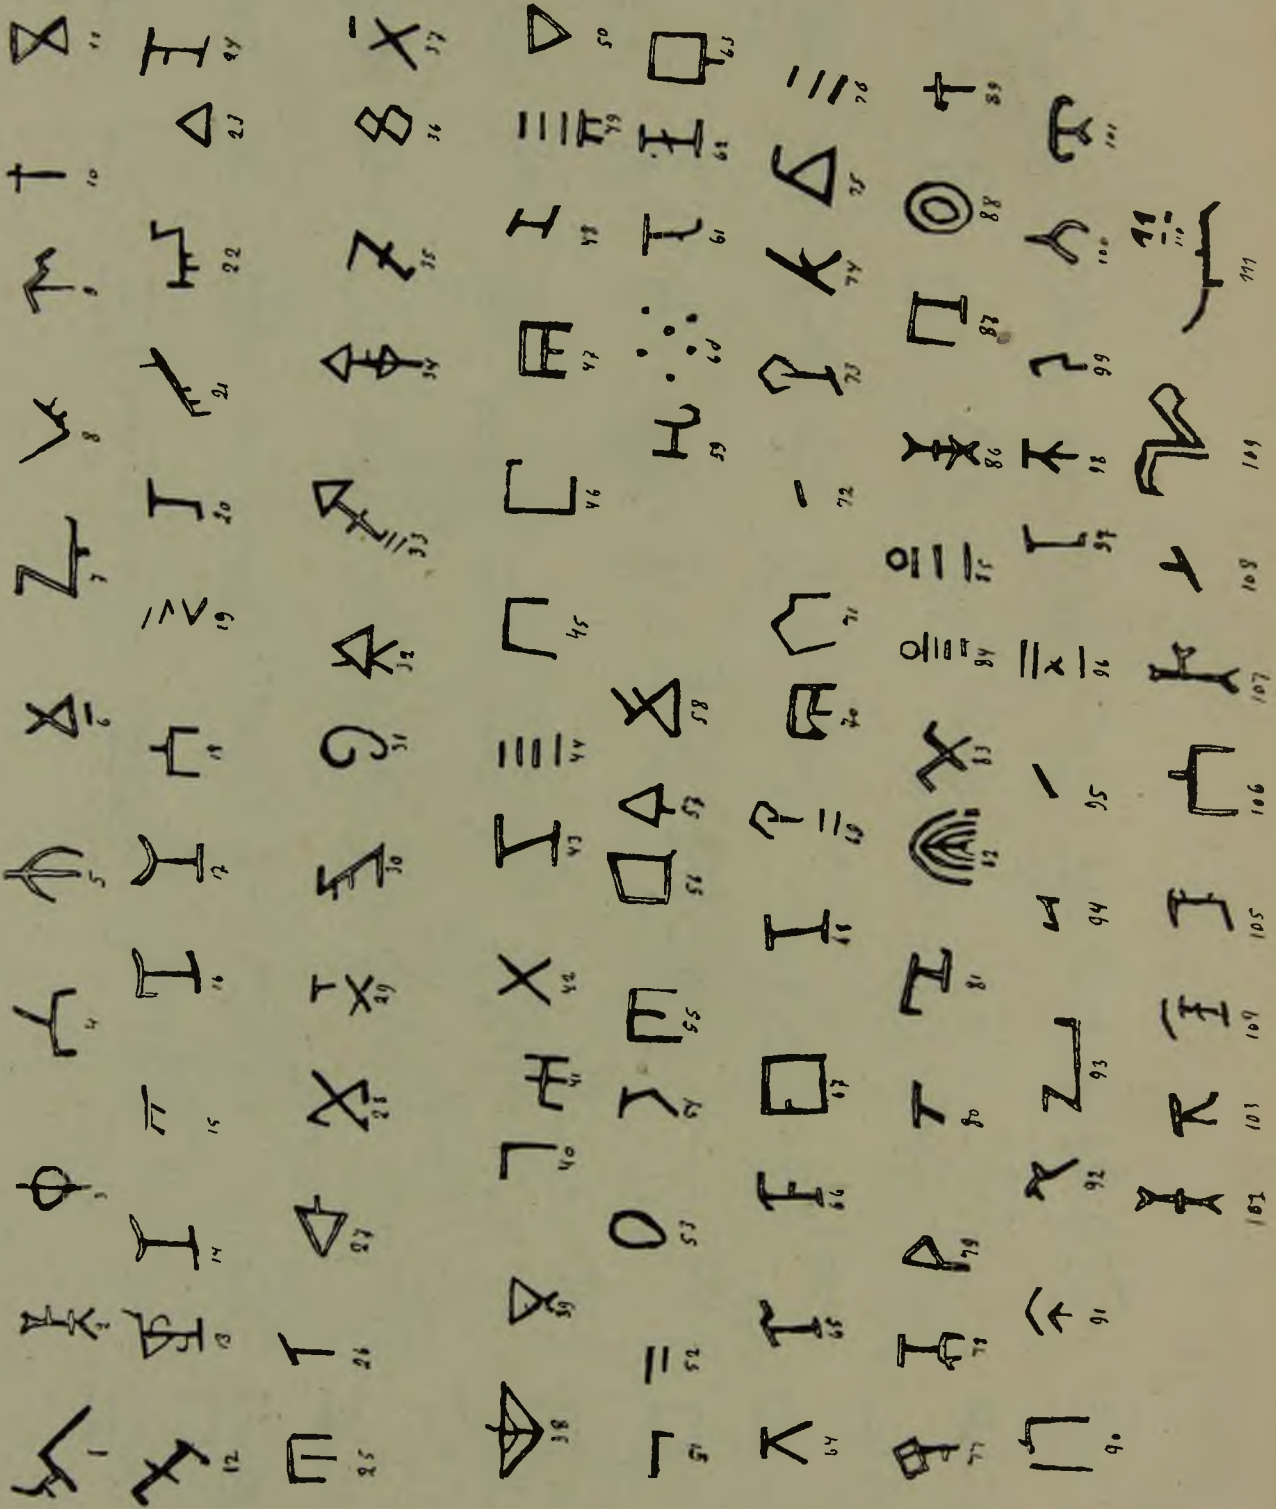 1 2 3 4 5 6 7 8 9 10 11
12 13 14 15 16 17 18 19 20 21 22 23 24
25 26 27 28 29 30 31 32 33 34 35 36 37
38 39 40 41 42 43 44 45 46 47 48 49 50
51 52 53 54 55 56 57 58 59 60 61 62 63
64 65 66 67 68 69 70 71 72 73 74 75 76
77 78 79 80 81 82 83 84 85 86 87 88 89
90 91 92 93 94 95 96 97 98 99 100 101
102 103 104 105 106 107 108 109 110 111